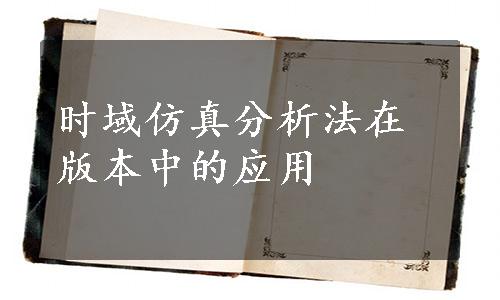 时域仿真分析法在
版本中的应用